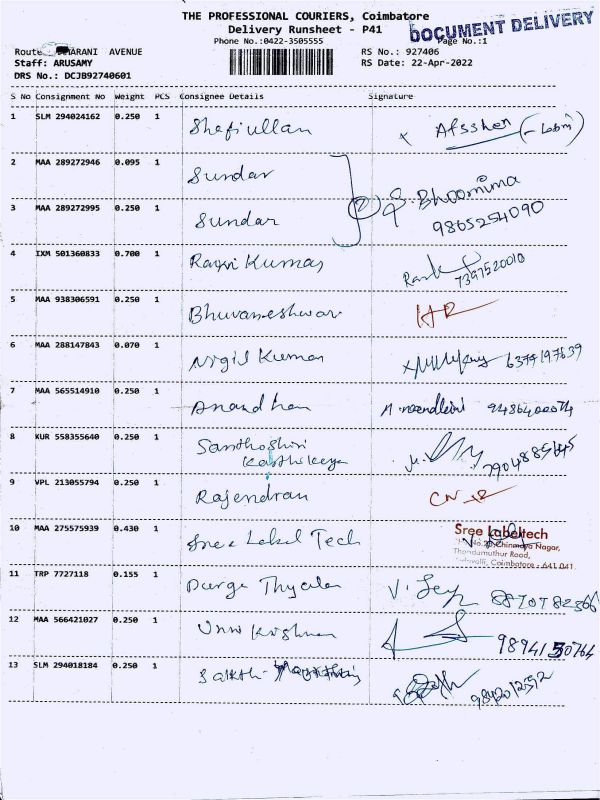 THE PROFESSIONAL COURIERS, Coimbatore
Delivery Runsheet - P41
DOCUMENT DELIVERY
Phone No.:0422-3505555
Page No.:1
Route ARANI AVENUE
RS No.: 927406
Staff: ARUSAMY
RS Date: 22-Apr-2022
DRS No.: DCJB92740601
S No Consignment No Weight PCS Consignee Details Signature
1 SLM 294024162 0.250 1 Shafiullah Afsshen
2 MAA 289272946 0.095 1 Sundar
Bhoomima
3 MAA 289272995 0.250 1 Sundar 9865254090
4 IXM 501360833 0.700 1 Kumar 7397520010
5 MAA 938306591 0.250 1 Bhuvaneshwar
6 MAA 288147843 0.070 1 Nigil Kumar 6374197639
7 MAA 565514910 0.250 1 Anandhan
8 KUR 558355640 0.250 1 Santhoshini
Karthikeya 7904885645
9 VPL 213055794 0.250 1 Rajendran
10 MAA 275575939 0.430 1 Sree Label Tech
Sree Labeltech
Chinmaya Nagar,
Thondamuthur Road,
Coimbatore - 641 041.
11 TRP 7727118 0.155 1 Durga
12 MAA 566421027 0.250 1 Unni Krishnan 9894150764
13 SLM 294018184 0.250 1 9842012592